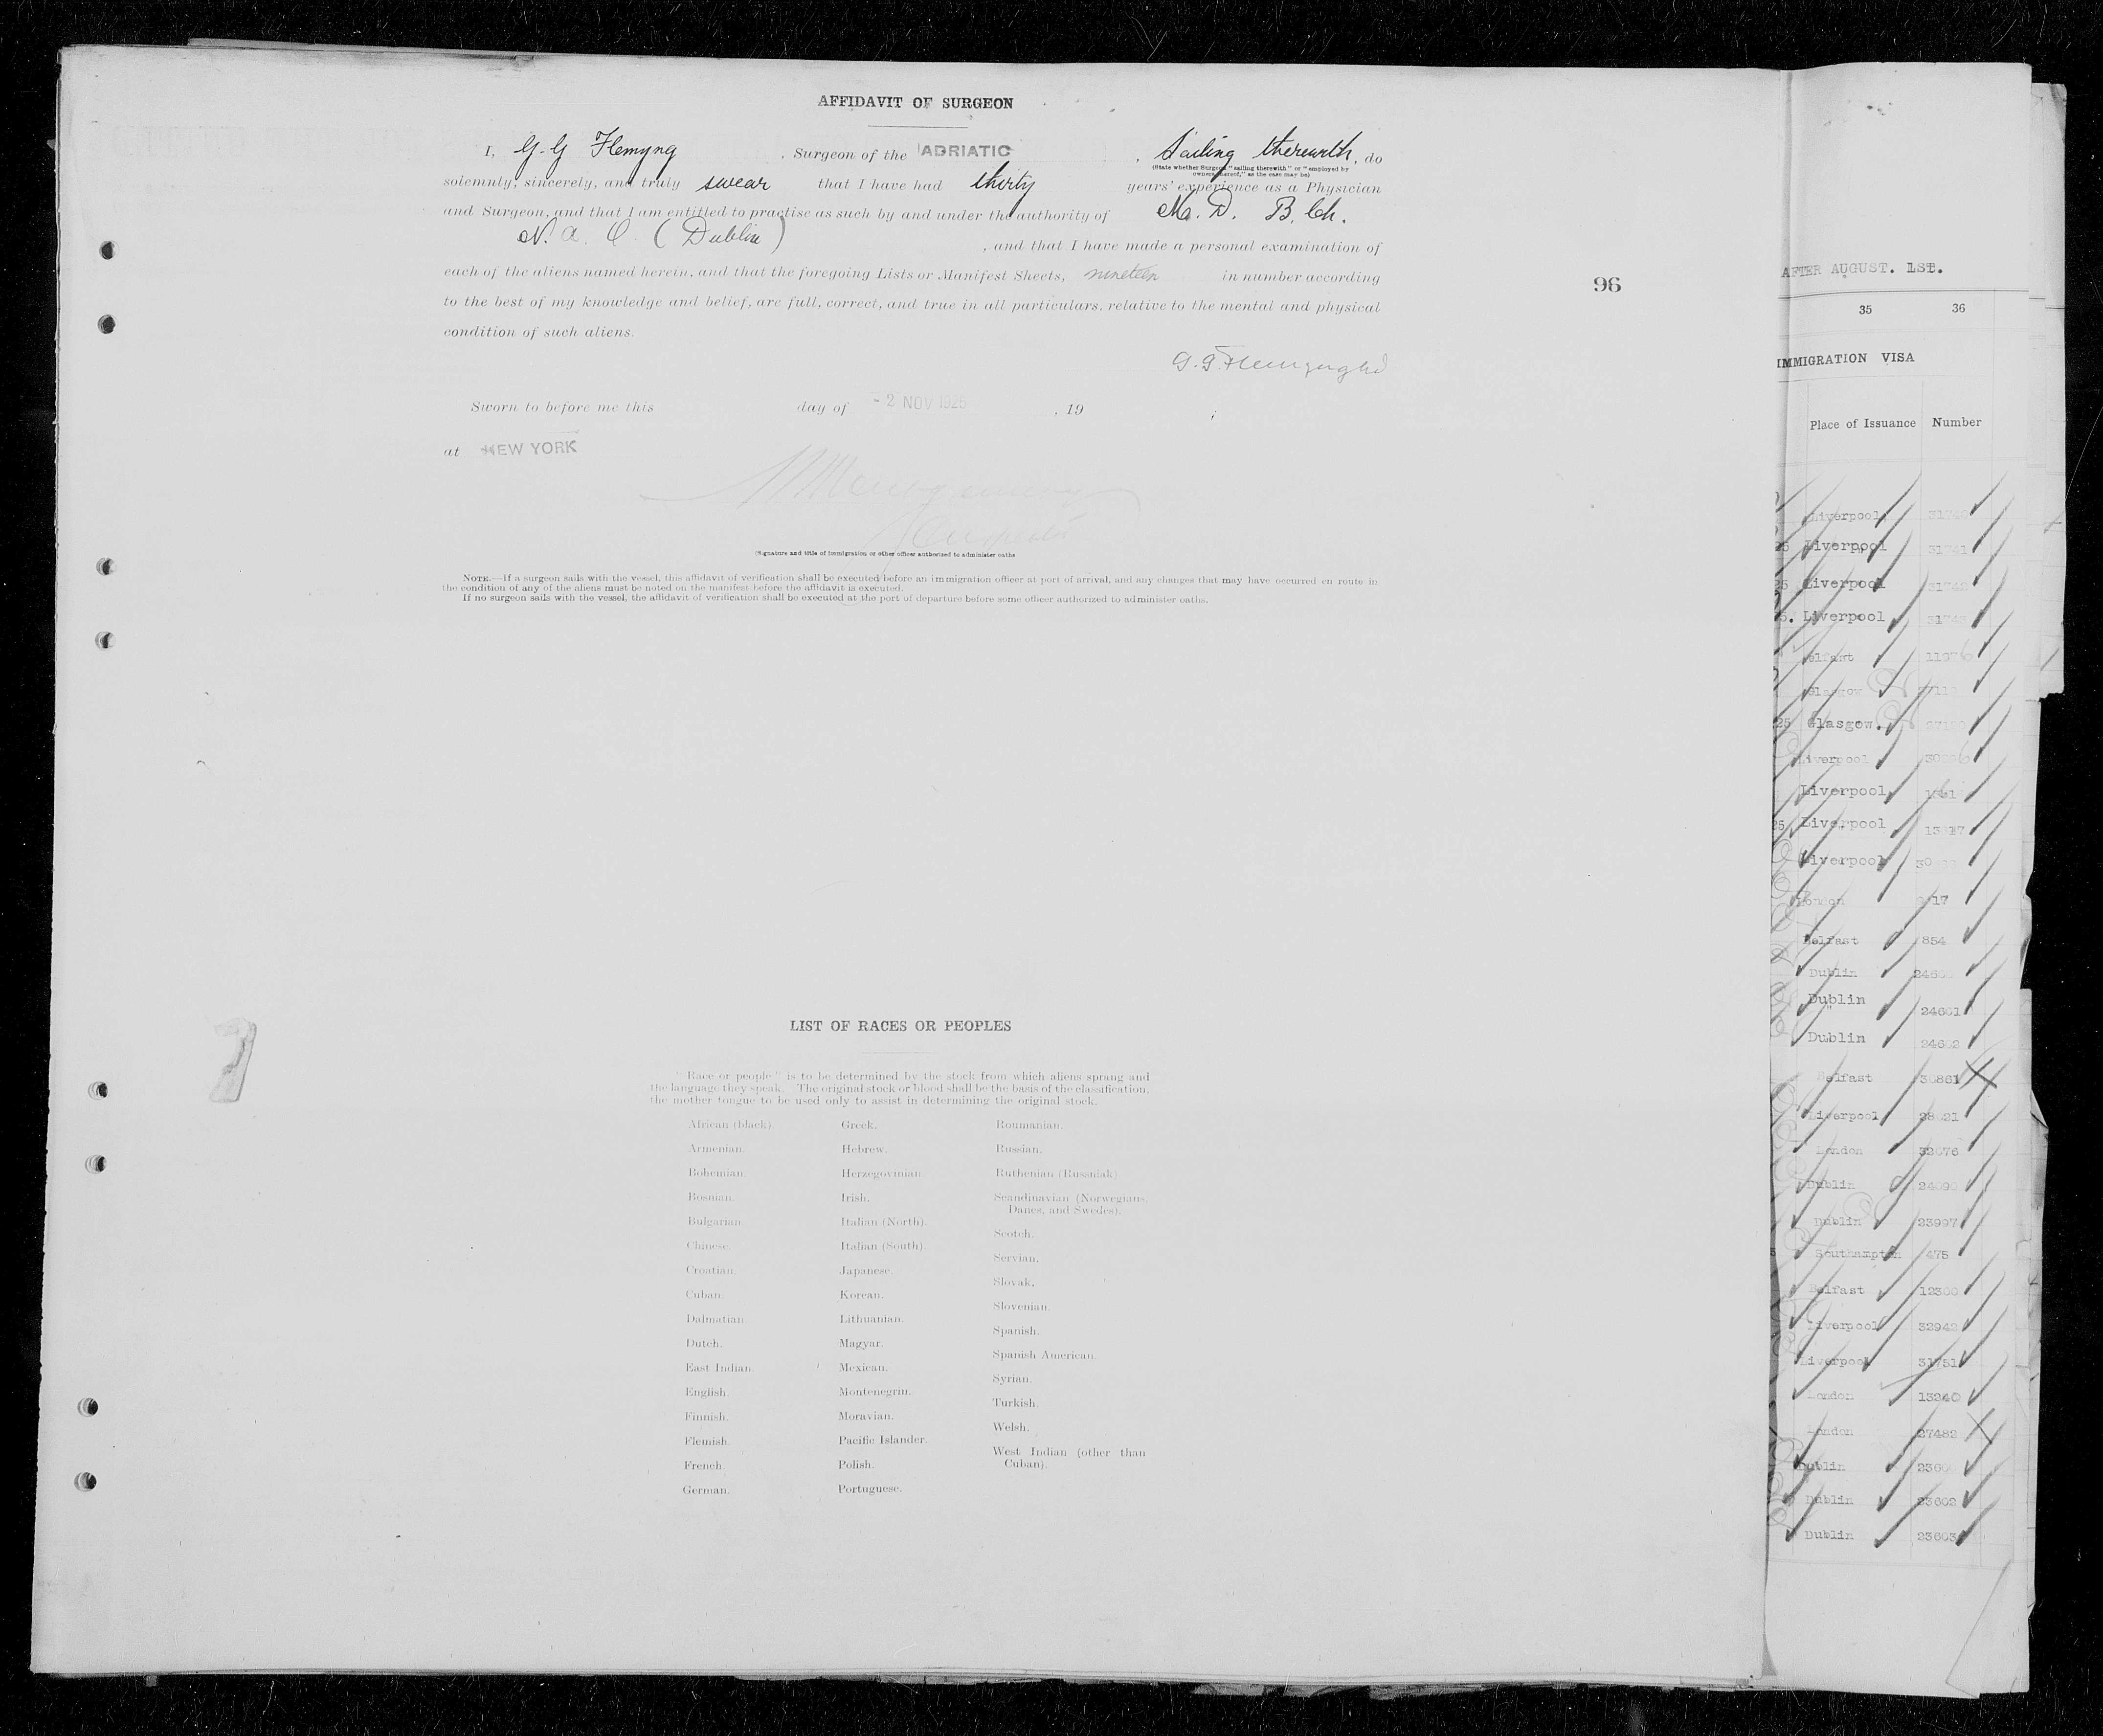 AFFIDAVIT OF SURGEON
I, G. G Flemyng , Surgeon of the ADRIATIC , Sailing therewith, do
(State whether Surgeon "sailing therewith" or "employed by
owners thereof," as the case may be)
solemnly, sincerely, and truly swear that I have had thirty years' experience as a Physician
and Surgeon, and that I am entitled to practise as such by and under the authority of M. D. B. Ch.
(Dublin) , and that I have made a personal examination of
each of the aliens named herein, and that the foregoing Lists or Manifest Sheets, nineteen in number according
to the best of my knowledge and belief, are full, correct, and true in all particulars, relative to the mental and physical
condition of such aliens.
96
Sworn to before me this day of - 2 NOV 1925 , 19 ;
at NEW YORK
Signature and title of immigration or other officer authorized to administer oaths
NOTE.—If a surgeon sails with the vessel, this affidavit of verification shall be executed before an immigration officer at port of arrival, and any changes that may have occurred en route in
the condition of any of the aliens must be noted on the manifest before the affidavit is executed.
If no surgeon sails with the vessel, the affidavit of verification shall be executed at the port of departure before some officer authorized to administer oaths.
LIST OF RACES OR PEOPLES
"Race or people" is to be determined by the stock from which aliens sprang and
the language they speak. The original stock or blood shall be the basis of the classification,
the mother tongue to be used only to assist in determining the original stock.
African (black).
Armenian.
Bohemian.
Bosnian.
Bulgarian.
Chinese.
Croatian.
Cuban.
Dalmatian.
Dutch.
East Indian.
English.
Finnish.
Flemish.
French.
German.
Greek.
Hebrew.
Herzegovinian.
Irish.
Italian (North).
Italian (South).
Japanese.
Korean.
Lithuanian.
Magyar.
Mexican.
Montenegrin.
Moravian.
Pacific Islander.
Polish.
Portuguese.
Roumanian.
Russian.
Ruthenian (Russniak).
Scandinavian (Norwegians,
Danes, and Swedes).
Scotch.
Servian.
Slovak.
Slovenian.
Spanish.
Spanish American.
Syrian.
Turkish.
Welsh.
West Indian (other than
Cuban).
AFTER AUGUST. 1ST.
35 36
IMMIGRATION VISA
Place of Issuance Number
Liverpool
Liverpool
Liverpool
Liverpool
Belfast
Glasgow
Glasgow.
Liverpool
Liverpool
Liverpool
Liverpool
London
Belfast 854
Dublin
Dublin 24601
Dublin 24602
Belfast 30861
Liverpool
London 32076
Dublin
Dublin 23997
Southampton 475
Belfast 12300
Liverpool 32942
Liverpool 31751
London 13240
London 27482
Dublin
Dublin 23602
Dublin 23603